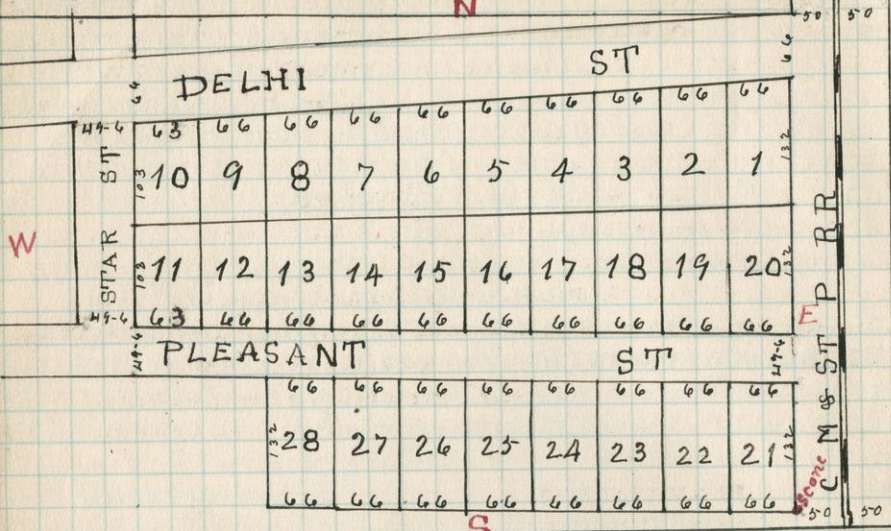 N
50 50
66
DELHI ST
66
49-6 63 66 66 66 66 66 66 66 66 66
103 10 9 8 7 6 5 4 3 2 1 132
STAR ST
W
103 11 12 13 14 15 16 17 18 19 20 132
49-6 63 66 66 66 66 66 66 66 66 66
E
49-6 PLEASANT ST 49-6
66 66 66 66 66 66 66 66
132 28 27 26 25 24 23 22 21 132
66 66 66 66 66 66 66 66
S
C M & ST P RR
50 50